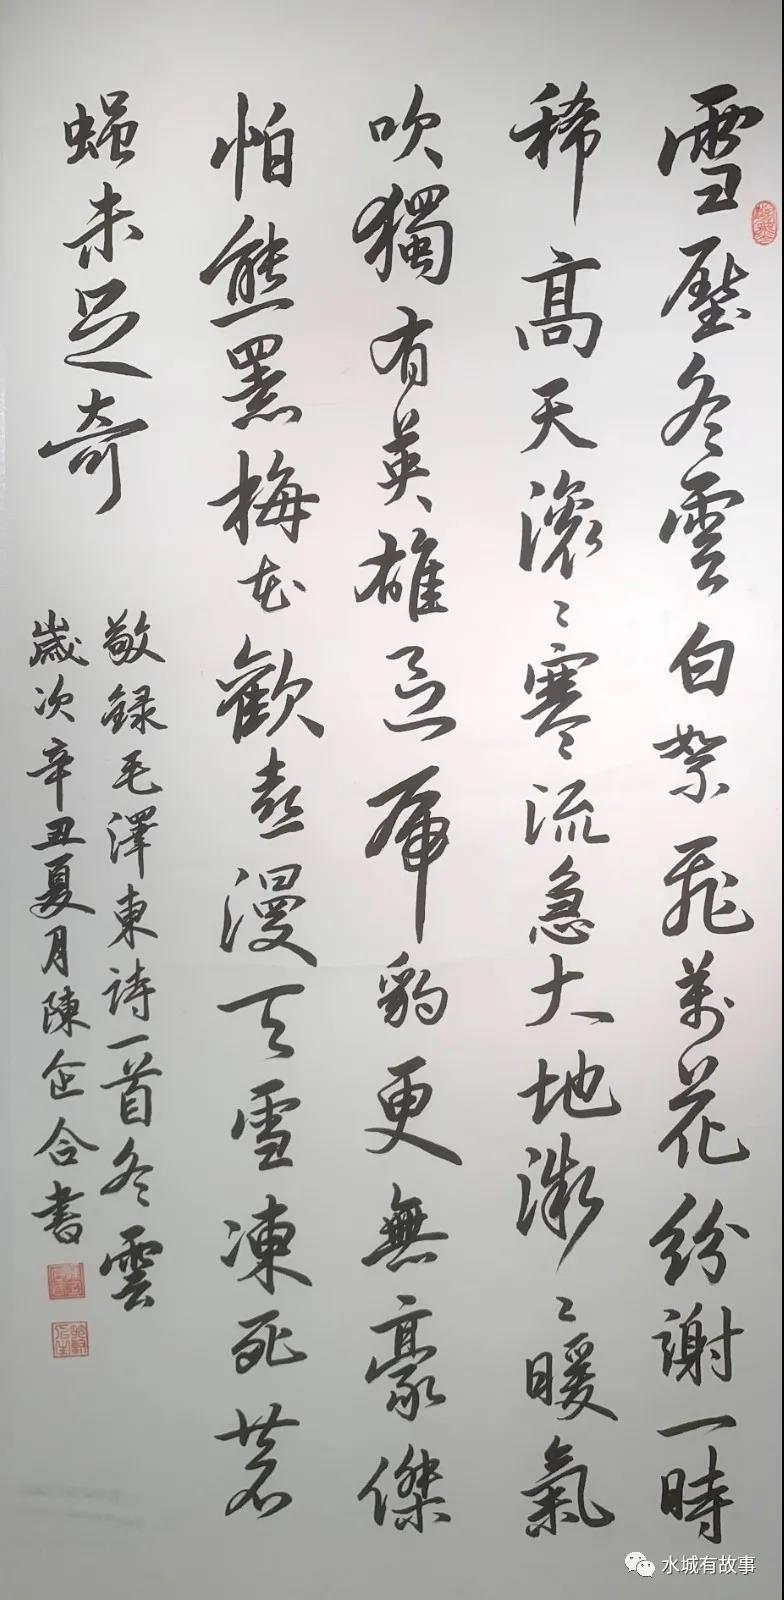 雪壓冬雲白絮飛萬花紛謝一時
稀高天滾〻寒流急大地微〻暖氣
吹獨有英雄驅虎豹更無豪傑
怕熊羆梅花歡喜漫天雪凍死蒼
蝇未足奇
敬録毛澤東詩一首冬雲
歲次辛丑夏月陳企合書
水城有故事